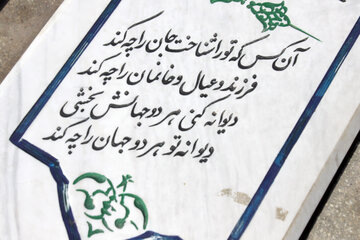 آن کس که تو را شناخت جان را چه کند
فرزند و عیال و خانمان را چه کند
دیوانه کنی هر دو جهانش بخشی
دیوانه تو هر دو جهان را چه کند